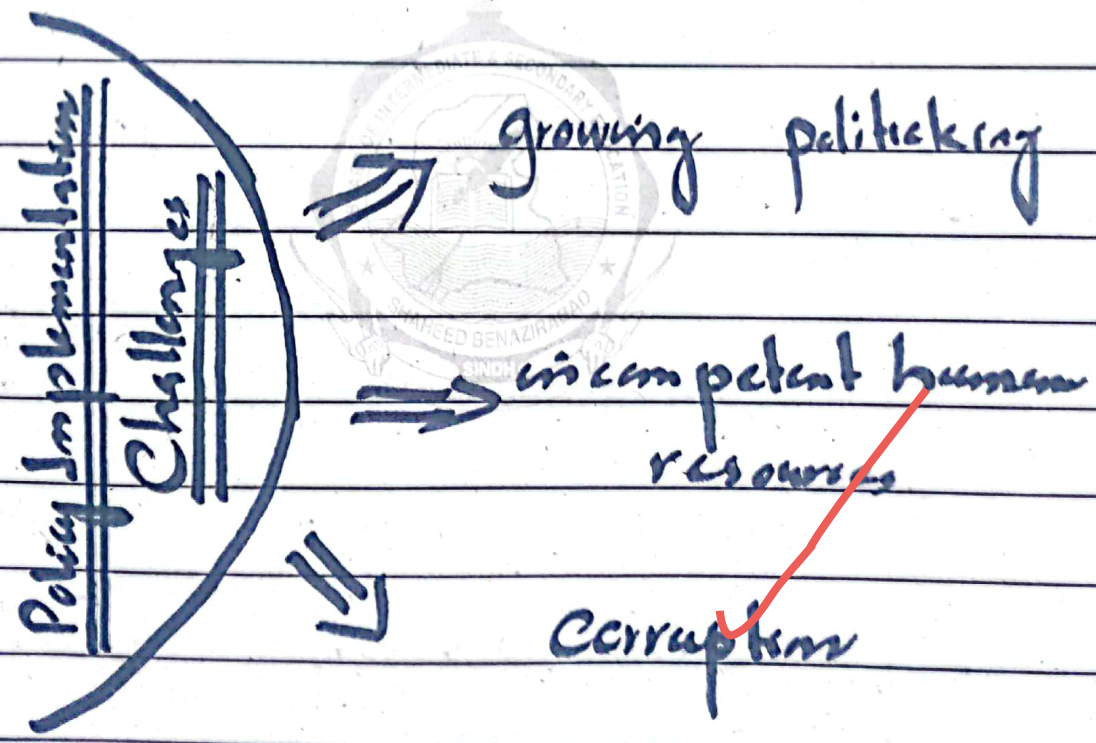 Policy Implementation
Challenges
growing politicking
incompetent human
resources
Corruption
OF INTERMEDIATE & SECONDARY EDUCATION
SHAHEED BENAZIRABAD
SINDH